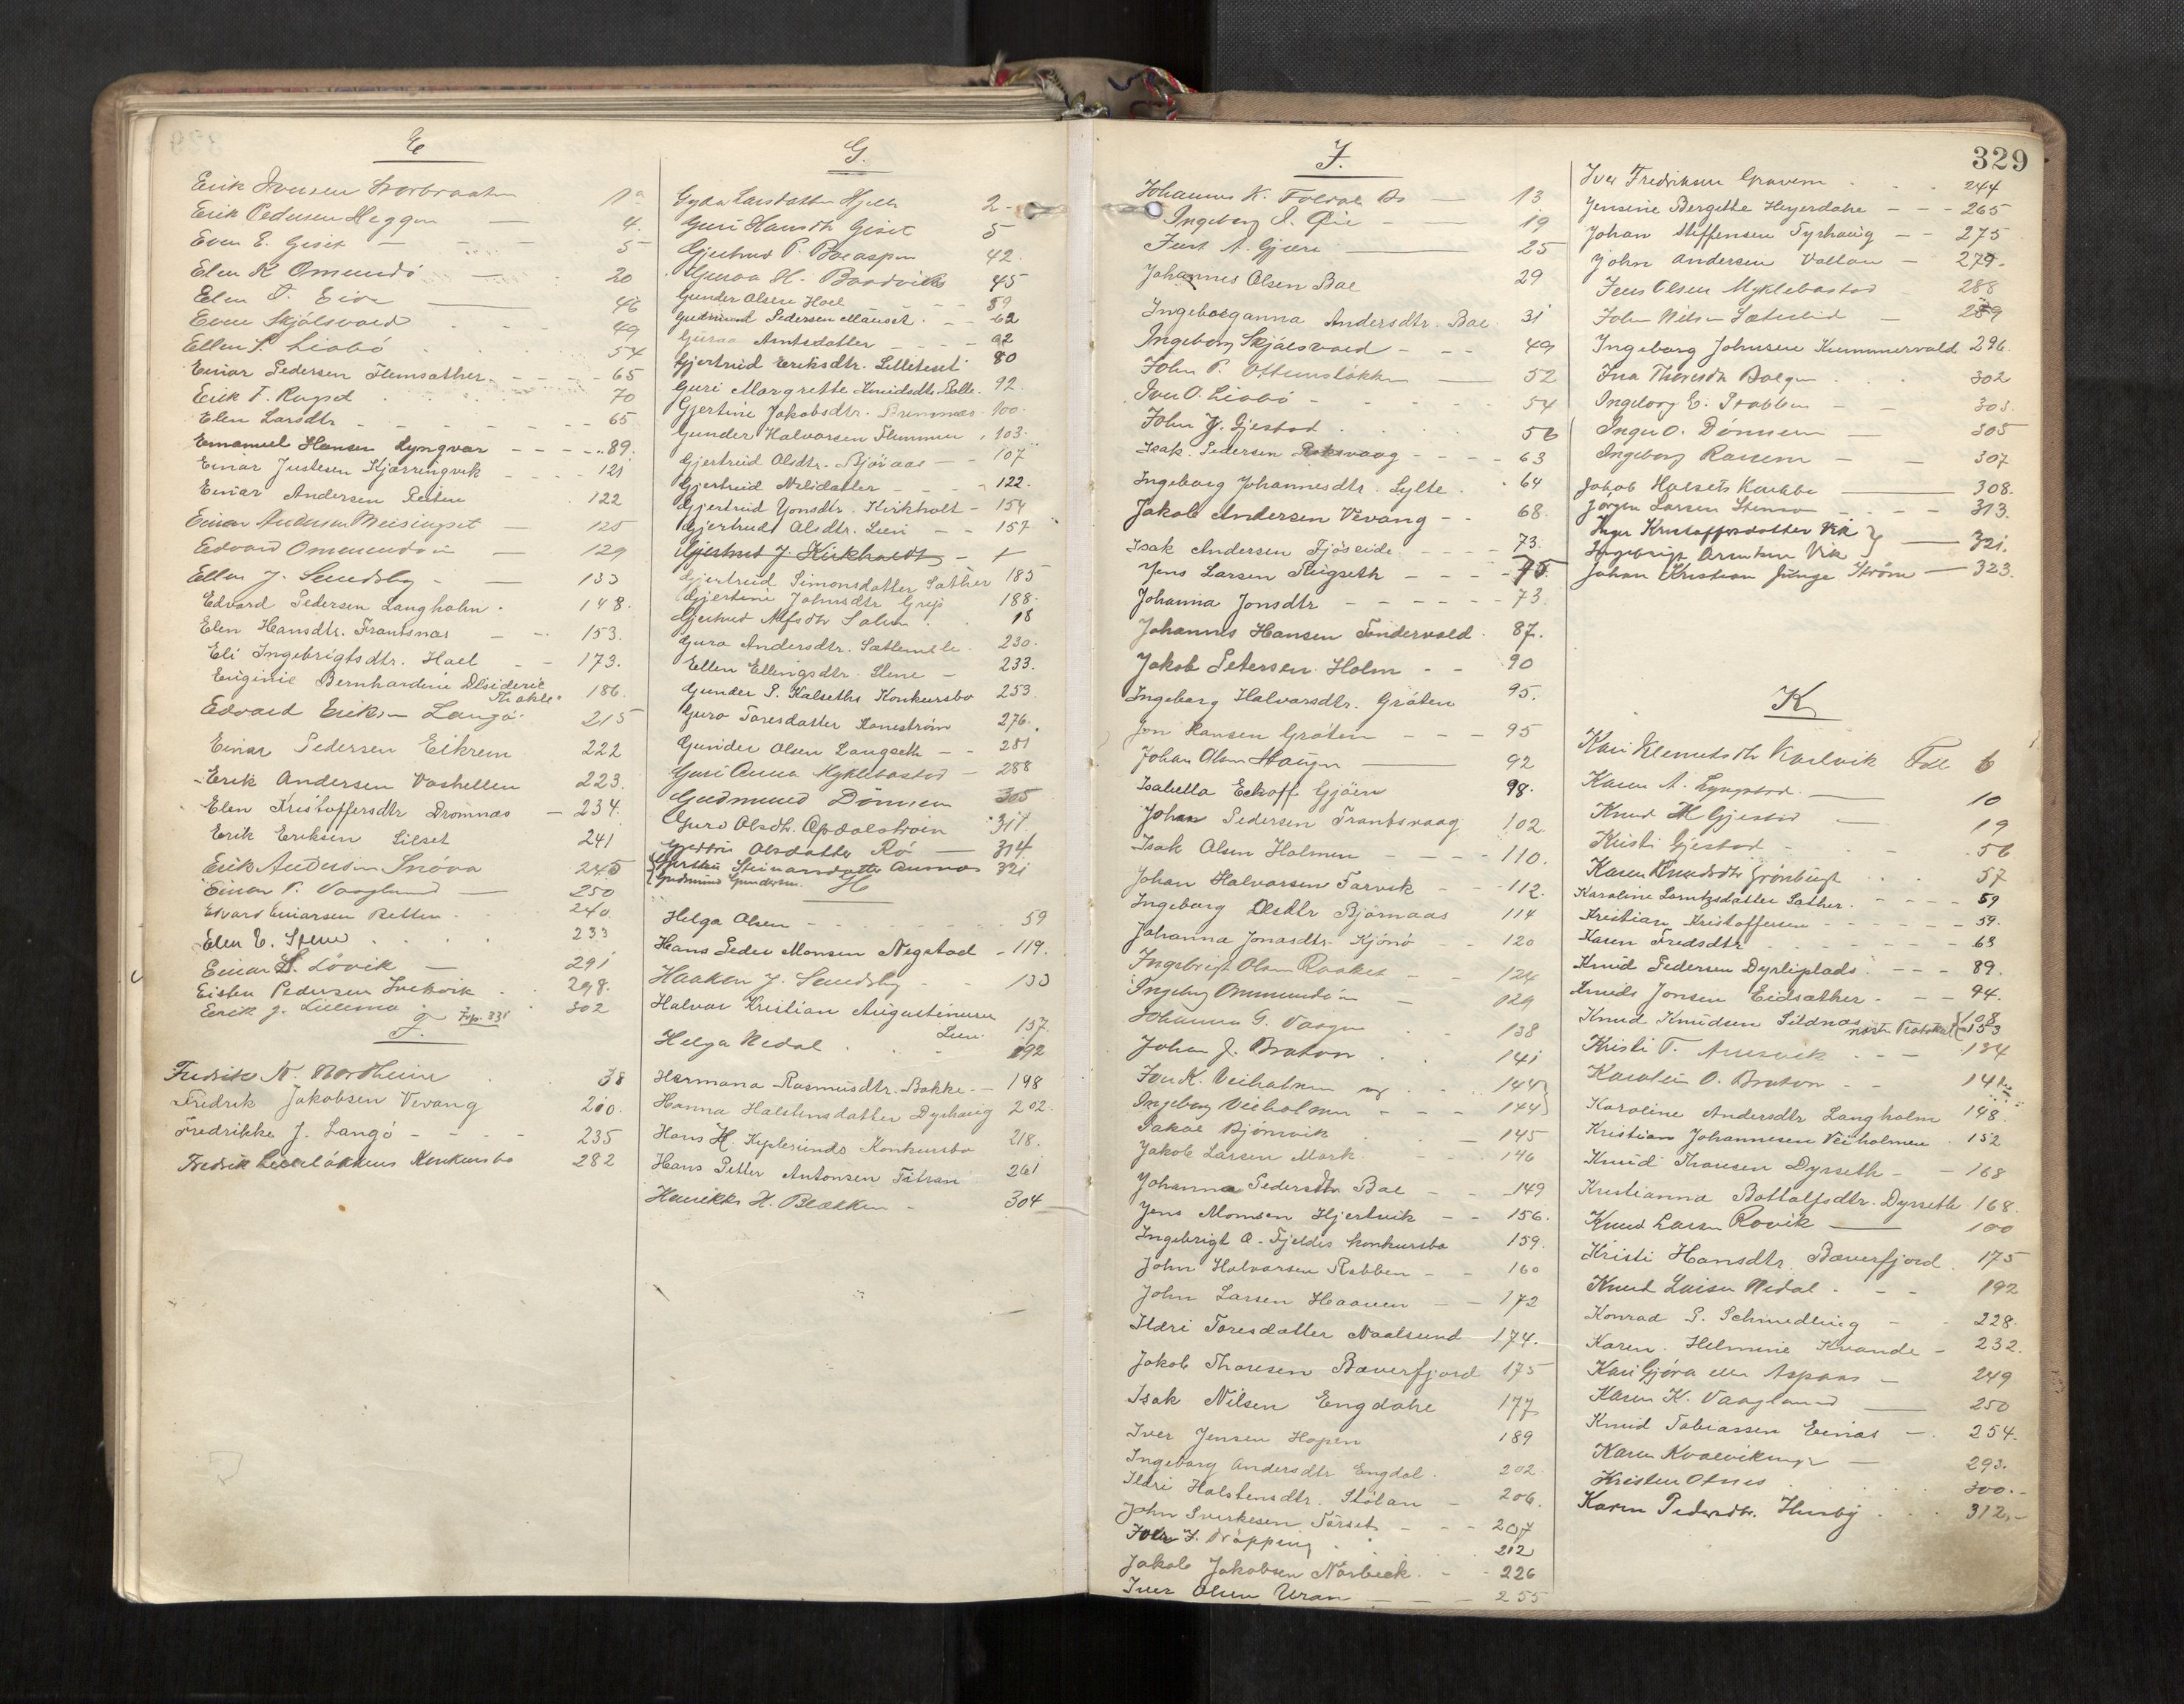 E
Erik Iversen
Erik Pedersen Heggem — 4.
Even E. Giset — — — 5
Elen K Omundö — 20
Eli T. Eide — 46
Even Skjölsvold 49
Ellen S. Liabö 54
Einar Pedersen Flemsæther — — 65
Erik T. Rugset 70
Elen Larsdtr — — — — 65
Emanuel Hansen Lyngvær — — — 89.
Einar Justesen Skjærringvik — — 121
Einar Andersen Reiten 122
Einar Andersen Meisingset — 125
Edvard Omundsön — 129
Ellen J. Sendsby — — 133
Edvard Pedersen Langholm 148.
Elen Hansdtr. Frantsnæs — — 153.
Eli Ingebrigtsdtr. Hoel — — 173.
Euginie Bernhardine Desiderie
Thakle 186.
Edvard Eriksen Langö 215
Einar Pedersen Eikrem 222
Erik Andersen Vashellen 223.
Elen Kristoffersdtr Dromnæs — 234.
Erik Eriksen Lilset 241
Erik Andersen Snöva 245
Einar P. Vaaglund — 250
Edvard Einarsen Betten 240.
Elen E. Stene 233
Einar L. Lövik — 291
Eisten Pedersen Svekvik 298.
Erik J. Lillemo 302
F. Frp. 331
Fredrik N. Nordheim 38
Fredrik Jakobsen Vevang 210.
Fredrikke J. Langö — — — 235
Fredrik Lilleløkkens Konkursbo 282
G.
Gyda Larsdatter Hjelle 2.
Guri Hansdtr Giset 5
Gjertrud P. Bæaspen 42.
Guroa H. Boksvik 45
Gunder Olsen Hoel — — — 59
Gudmund Pedersen Mauset — — 62
Guroa Arntsdatter — — — 92
Gjertrud Eriksdtr. Lilleteset 80
Guri Margrette Knudsdtr. Polle. 92.
Gjertine Jakobsdtr. Bremnæs 100.
Gunder Halvorsen Flemmen 103.
Gjertrud Olsdtr. Björaas — — 107
Gjertrud Nilsdatter — — — 122.
Gjertrud Jonsdtr. Kirkholt — 154
Gjertrud Olsdtr. Leen — — 157
Gjertrud J. Kirkholt —
Gjertrud Simonsdatter Sæther 185
Gjertine Johnsdtr Grip 188.
Gjertrud Alfsdtr Solem 18
Guro Andersdtr. Sætlemele 230.
Ellen Ellingsdtr. Stene — 233.
Gunder P. Kalseths Konkursbo 253.
Guro Toresdatter Kaneström 276.
Gunder Olsen Langseth — — 281
Guri Anna Myklebostad — 288
Gudmund Dönnem 305
Guro Olsdtr. Opdalströen 311
Gjertru Olsdatter Rö — 314
Gjertru Steinarsdatter Aunnæs 321
Gudmund Gundersen
H
Helga Olsen — 59
Hans Peder Monsen Negstad — 119.
Haaken J. Sendsby — — 133
Halvor Kristian Augustinusen
Leen 157.
Helga Nedal 192
Hermana Rasmusdtr. Bakke — 198
Hanna Halstensdatter Dyrhaug 202.
Hans H. Keplesunds Konkursbo 218.
Hans Petter Antonsen Tåtran 261
Henrikke H. Blakken — 304
329
J.
Johannes K. Foldal — 13
Ingeborg I. Øie — — 19
Just A. Gjære — 25
Johannes Olsen Bae 29
Ingeborganna Andersdtr. Bae 31
Ingeborg Skjölsvold — — — 49
John P. Ottemsløkken — 52
Iver O. Liabö — — — 54
John J. Gjestad 56
Isak Pedersen Roksvaag — — — 63
Ingeborg Johannesdtr. Sylte 64
Jakob Andersen Vevang — — 68.
Isak Andersen Tjöseide — — 73.
Jens Larsen Rugseth — — — 75.
Johanna Jonsdtr — — — — — 73.
Johannes Hansen Tøndervold. 87.
Jakob Petersen Holm — — 90
Ingeborg Halvorsdtr. Gråten 95.
Jon Hansen Gråten — — — 95
Johan Olsen Haugen — 92
Isabella Eckroff Gjöen 98.
Johan Pedersen Frantsvaag 102.
Isak Olsen Holmen — — — — 110.
Johan Halvorsen Tarvik — — 112.
Ingeborg Olsdtr Bjørnaas 114
Johanna Jonasdtr. Kjönö — 120
Ingebrigt Olsen Raaket — — 124
Ingeborg Ommundsön — 129
Johanna G. Vaagen 138
Johan J. Braton 141
Iver K. Veiholmen og 144
Ingeborg Veiholmen — — — 144
Jakob Bjørnvik — 145
Jakob Larsen Mork. 146
Johanna Pedersdtr Bae — — 149
Jens Monsen Hjertvik — — 156.
Ingebrigt O. Fjeldes konkursbo 159.
John Halvorsen Rabben — — 160
John Larsen Haaven — — 172
Ildri Toresdatter Naalsund 174.
Jakob Thoresen Bæverfjord 175
Isak Nilsen Engdahl 177
Iver Jensen Hopen 189
Ingeborg Andersdtr Engdal. 202
Ildri Halstensdtr. Stölan — 206.
John Sverkesen Tårset — — — 207
Iver J. Nröpping 212
Jakob Jakobsen Nårbeck. — — 226
Iver Olsen Uran — — — 255
Iver Fredriksen Gravem 244
Jensine Bergitte Heyerdahl — — 265
Johan Steffensen Tyrhaug — — 275
John Andersen Vollan — 279.
Jens Olsen Myklebostad 288
John Nilsen Sæterlid — 289
Ingeborg Johnsen Kummervold 296.
Ina Thoresdtr Bolgen 302
Ingeborg E. Stabben — — 303.
Inger O. Dönnem — 305
Ingeborg Ranem — — 307
Jakob Halsets Knebbe — 308.
Jørgen Larsen Stensø — — 313.
Inger Kristoffersdatter Vik
Ingebrigt Arentsen Vik } — 321.
Johan Kristian Junge Ström — 323.
K
Kari Klemetsdtr Karlvik Fol 6
Karen A. Lyngstad — 10
Knud M Gjestad — 19
Kristi Gjestad — 56
Karen Knudsdtr Grönbugt 57
Karoline Lorntzsdatter Sæther. — — 59
Kristian Kristoffersen — — — 59.
Karen Fredsdtr — — — 63
Knud Pedersen Dyrliplads. — — — 89.
Knud Jonsen Eidsæther — — — 94.
Knud Knudsen Sildnæs 108
153
Kristi T. Aresvik — 134
Karolin O. Braton — — 141
Karoline Andersdtr Langholm 148
Kristian Johannesen Veiholmen 152
Knud Thoresen Dyrseth — — 168
Kristianna Bottolfsdtr. Dyrseth 168.
Knud Larsen Rovik — 100
Kristi Hansdtr. Bæverfjord. 175
Knud Larsen Nedal — — 192
Konrad P. Schmedling — 228.
Karen Helmine Kvande — 232.
Kari Gjöra eller Aspaas — 249
Karen K. Vaaglund — 250
Knud Tobiassen Einås — 254.
Karen Kvalvikmyr — 293.
Kristen Otnes 300.
Karen Pedersdtr. Husby 312.